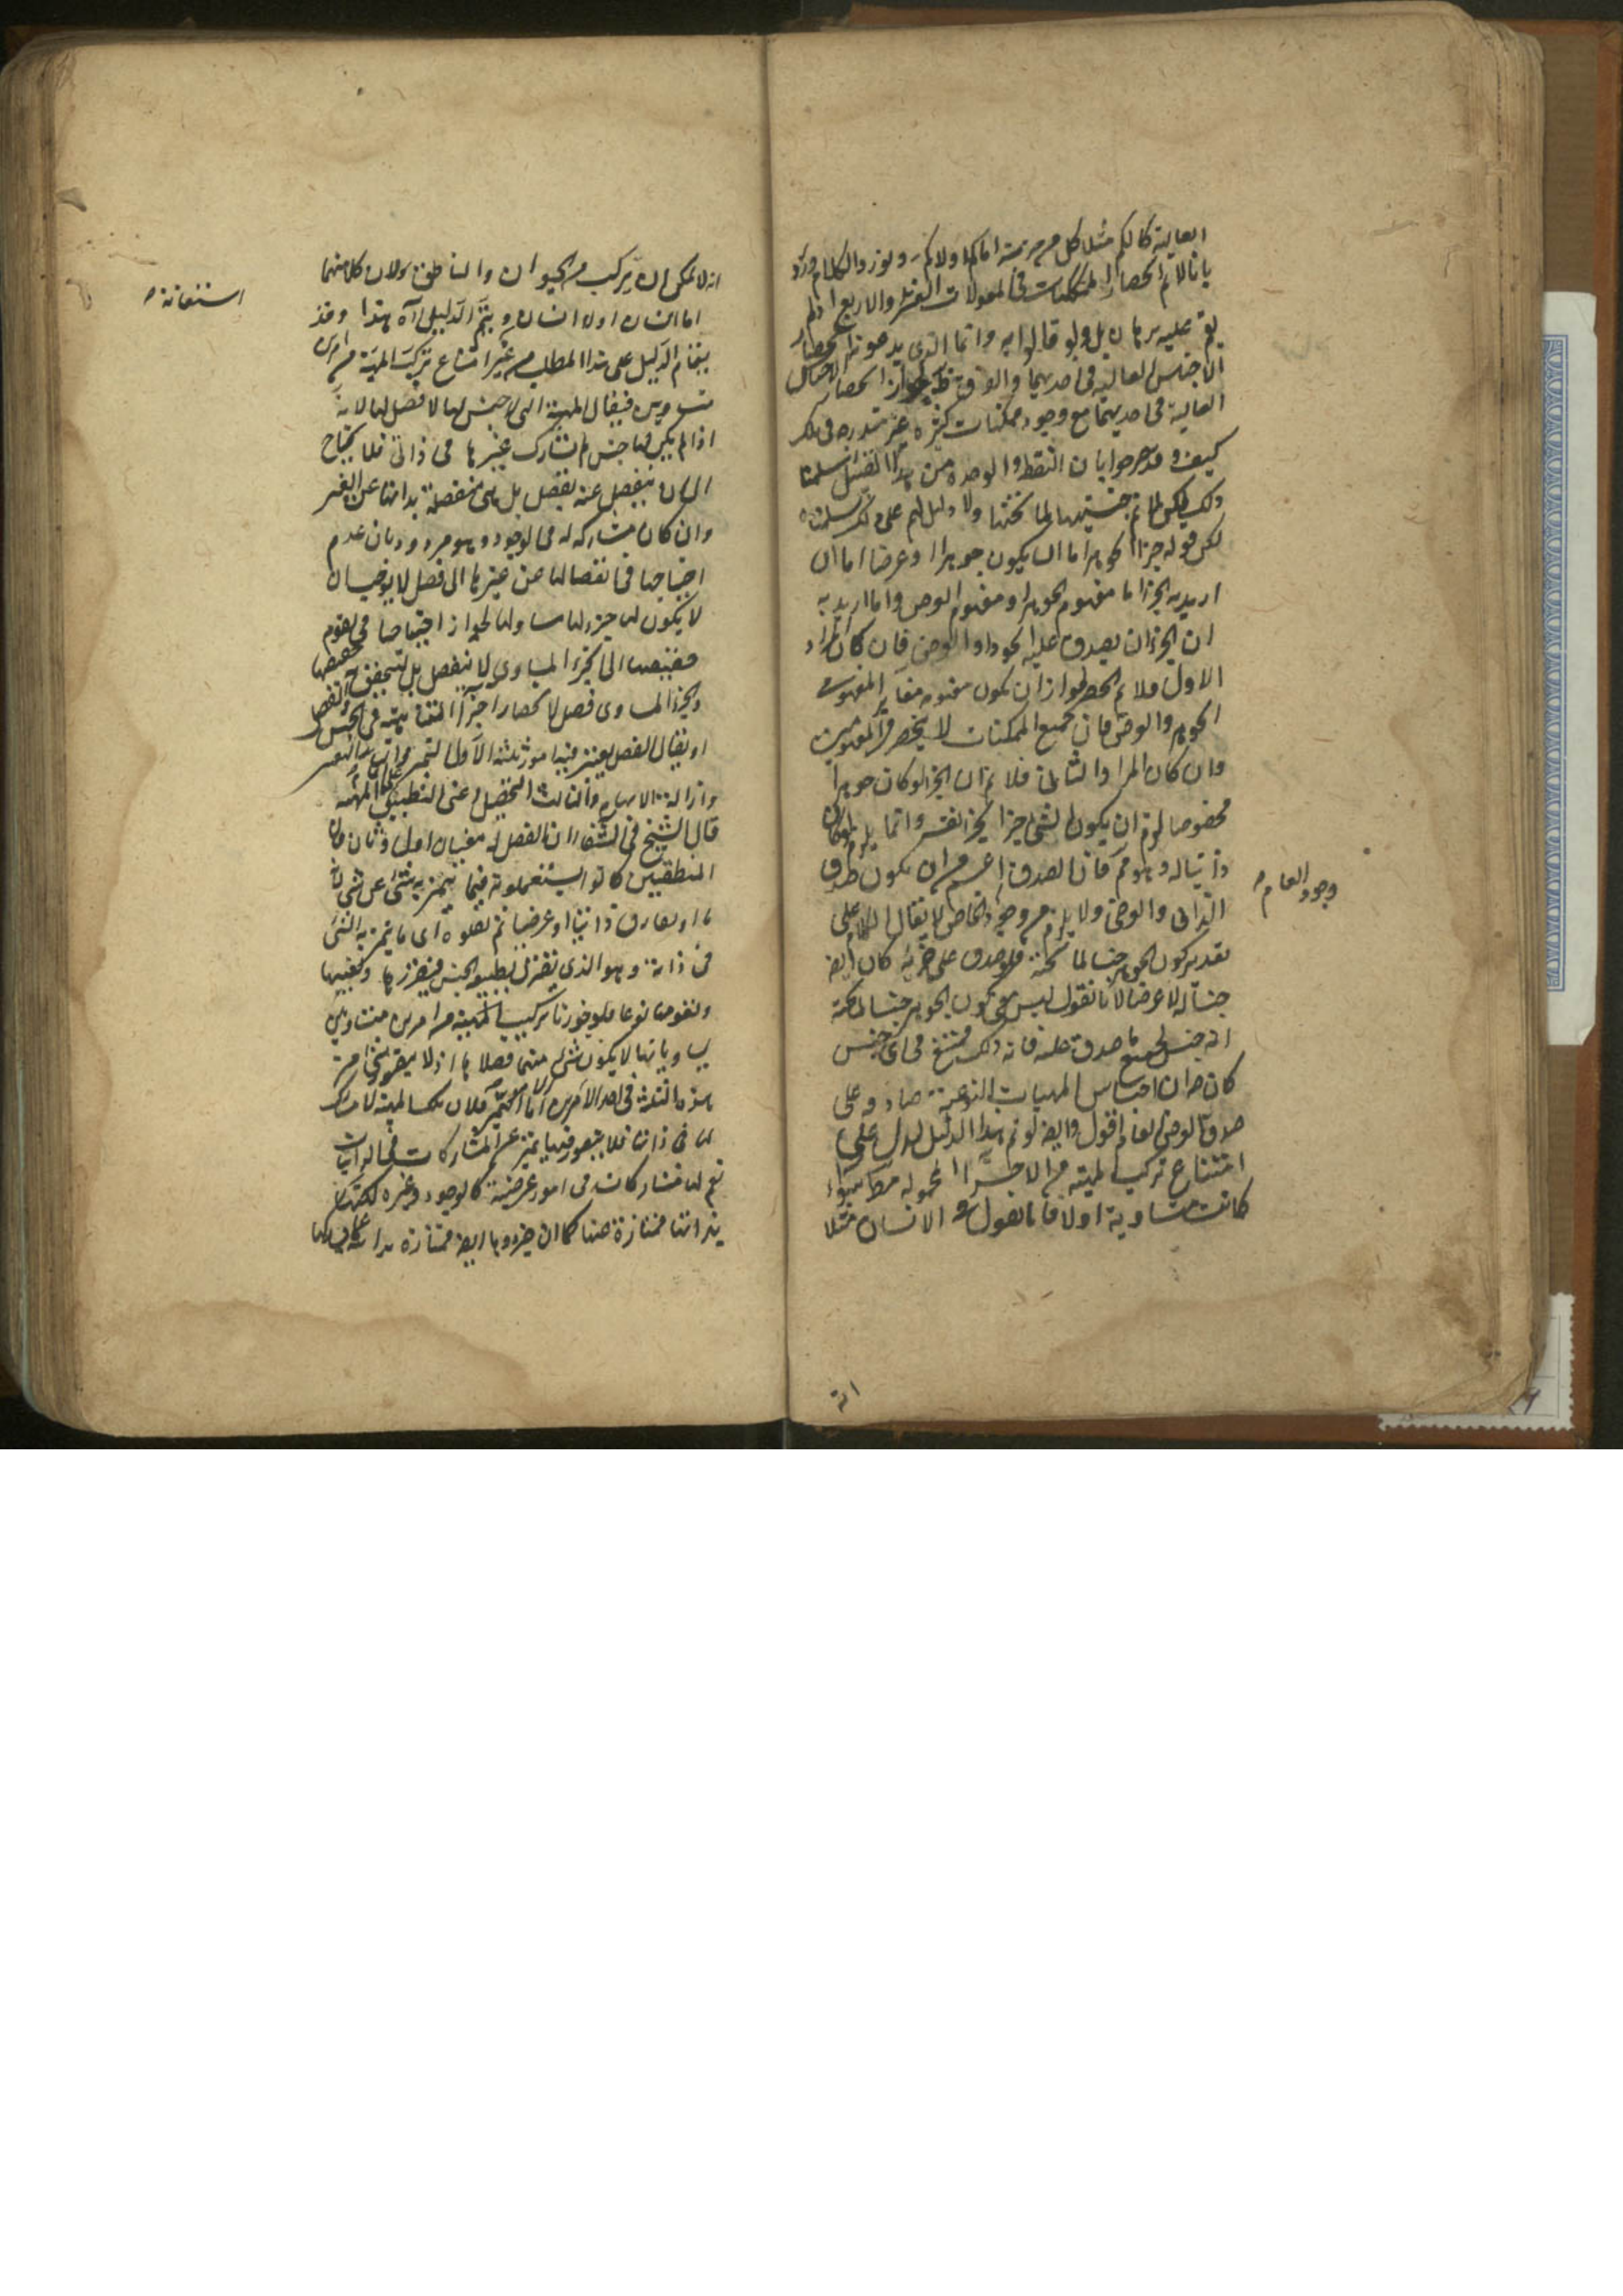 العالية كالكم مثلا كل من جزئيه اما كم او لا كم ويورد الكلام
بانا لانم انحصار الممكنات في المقولات العشر او الاربع اذ لم
يقم عليه برهان بل ولم قالوا به وانما الذي يدعونه انحصار
الاجناس العالية في احديهما والفرق ظ لجواز انحصار الاجناس
العالية في احديهما مع وجود ممكنات كثيرة غير مندرجة في ذلك
كيف وقد صرحوا بان النقطة والوحدة من هذا القبيل سلمنا
ذلك لكن لانم جنسيتها لما تحتها ولا دليل لهم على ذلك سلمناه
لكن قوله جزء الجوهر اما ان يكون جوهرا او عرضا اما ان
اريد به الجزء اما مفهوم الجوهر او مفهوم العرض واما اريد به
ان الجزء ان يصدق عليه الجوهر او العرض فان كان المراد
الاول فلانم الحصر لجواز ان يكون مفهومه مغاير المفهومي
الجوهر والعرض فان جميع الممكنات لا ينحصر في المفهومين
وان كان المراد الثاني فلانم ان الجزء لو كان جوهرا
مخصوصا لزم ان يكون الشئ جزء لجزء نفسه وانما يلزم لو كان
ذاتيا له وهو مم فان الصدق اعم من ان يكون صدق
الذاتي والعرضي ولا يلزم من وجود الخاص لا يقال الكلام على
وجود العام
تقدير كون الجوهر جنسا لما تحته فلو صدق على جزئه كان ايضا
جنسا له لا عرضا لانا نقول ليس معنى كون الجوهر جنسا لما تحته
انه جنس لجميع ما صدق عليه فانه ذلك ممتنع في اي جنس
كان ضرورة ان اجناس المهيات النوعية صادقة على
صدق العرض العام اقول وايضا لو تم هذا الدليل لدل على
امتناع تركيب المهية من الاجزاء المحمولة مطلقا سواء
كانت متساوية اولا فانا نقول الانسان مثلا
انه
انه لا يمكن ان يتركب من الحيوان والناطق لان كلا منهما
استغناء
اما انسان او لا انسان ويتم الدليل آه هذا وقد
يقام الدليل على هذا المطلب من غير امتناع تركيب المهية من امرين
متساويين فيقال المهية التي لا جنس لها لا فصل لها لانه
اذا لم يكن لها جنس لم تشارك غيرها في ذاتي فلا يحتاج
الى ان ينفصل عنه بفصل بل هي منفصلة بذاتها عن الغير
وان كان مشاركة له في الوجود وهو مردود بان عدم
احتياجها في انفصالها عن غيرها الى فصل لا يوجب ان
لا يكون لها جزء لها مساو لها لجواز احتياجها في تقوم
حقيقتها الى الجزء المساوي لا لينفصل بل لتحقق حقيقتها
والجزء المساوي فصل لانحصار اجزاء المهية في الجنس والفصل
او يقال الفصل يعتبر فيه امور ثلثة الاول التميز والثاني التعيين
وازالة الابهام والثالث التحصيل اعني التطبيق على تمام المهية
قال الشيخ في الشفاء ان الفصل له معنيان اول وثان فان
المنطقيين كانوا يستعملونه فيما يتميز به شئ عن شئ لازما
او مفارق ذاتيا او عرضيا ثم نقلوه الى ما يتميز به الشئ
في ذاته وهو الذي يقترن بطبيعة الجنس فيفرزها ويعينها
ويقومها نوعا فلو جوزنا تركيب المهية من امرين متساويين
يساويانها لا يكون شئ منهما فصلا لها اذ لا يتصور شئ من
هذه الثلثة في احد الامرين اما التميز فلان تلك المهية لا مشارك
لها في ذاتها فلا يتصور فيها تميز عن المشاركات في الذاتيات
نعم لها مشاركات في امور عرضية كالوجود وغيره لكنها
بذاتها ممتازة عنها كما ان جزءها ايضا ممتازة بذاته عما يشاركها